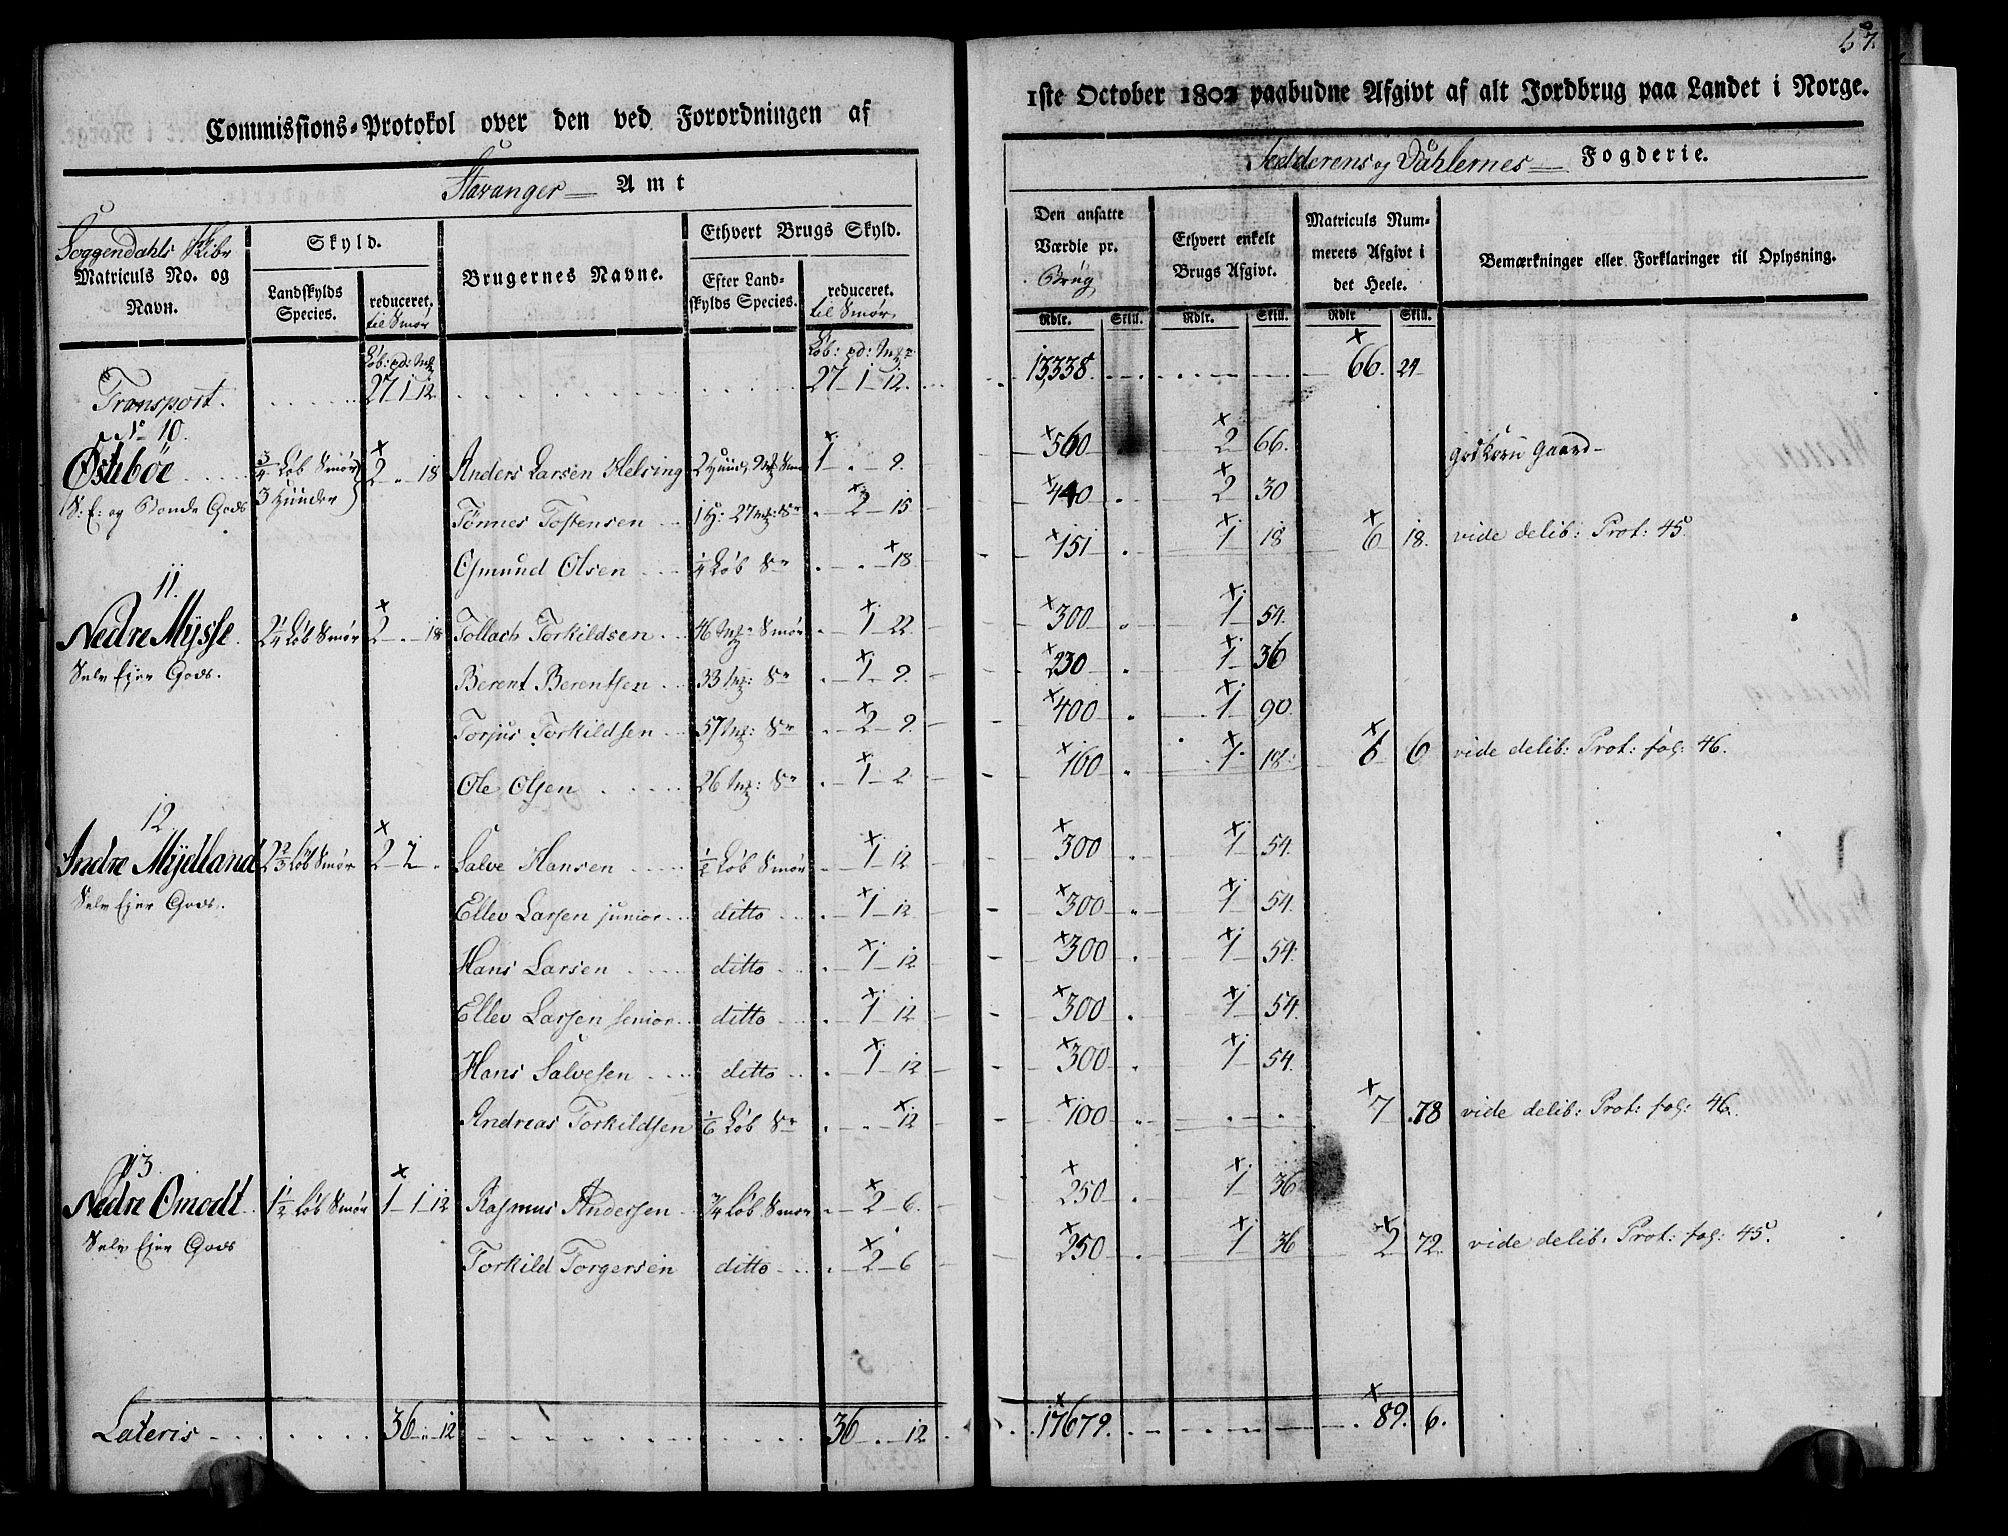 57.
Commissions-Protokol over den ved Forordningen af
1ste October 1802 paabudne Afgivt af alt Jordbrug paa Landet i Norge.
Stavanger Amt
Jedderens og Dahlernes Fogderie.
Soggendahls Skibr
Matriculs No. og Navn.
Skyld.
Landskylds Species.
reduceret. til Smør
Brugernes Navne.
Ethvert Brugs Skyld.
Efter Landskylds Species.
reduceret. til Smør
Den ansatte Værdie pr. Brug
Ethvert enkelt Brugs Afgivt.
Matriculs Nummerets Afgivt i det Heele.
Bemærkninger eller Forklaringer til Oplysning.
Rdlr. Skill. Rdlr. Skill. Rdlr Skill.
Transport. 27 1 12 27 1 12. 13,338. 66. 24
No 10.
Østebøe 3/4 Løb Smør 3 Huuder 2 18 Anders Larsen Helsing 1 9. 560 2 66.
S: E: og Bonde Gods Tønnes Tostensen 2 15 440 2 30
Osmund Olsen 1/4 Løb Sr 18 151 1 18 6 18. vide delib: Prot: 45.
11.
Nedre Mysse 2 1/4 Løb Smør 2 18 Tollach Torkildsen 1 22 300 1 54.
Selv Ejer Gods. Berent Berentsen 1 9. 230 1 36
Torjus Torkildsen 2 9. 400 1 90.
Ole Olsen 1 2 160 1 18. 6 6 vide delib: Prot: fol: 46.
12.
Andre Mydland 2 2/3 Løb Smør 2 2 Salve Hansen 1/2 Løb Smør 1 12 300 1 54.
Selv Ejer Gods. Ellev Larsen junior ditto 1 12 300 1 54.
Hans Larsen ditto 1 12 300 1 54.
Ellev Larsen senior ditto 1 12 300 1 54.
Hans Salvesen ditto 1 12 300 1 54.
Andreas Torkildsen 1/6 Løb Sr 12 100 7 78 vide delib: Prot: fol: 46.
13.
Nedre Omodt 1 1/2 Løb Smør 1 1 12 Rasmus Andersen 3/4 Løb Smør 2 6. 250 1 36
Selv Ejer Gods Torkild Torgersen ditto 2 6 250 1 36 2 72. vide delib. Prot: fol: 45.
Lateris 36 12 36 12 17679. 89. 6.